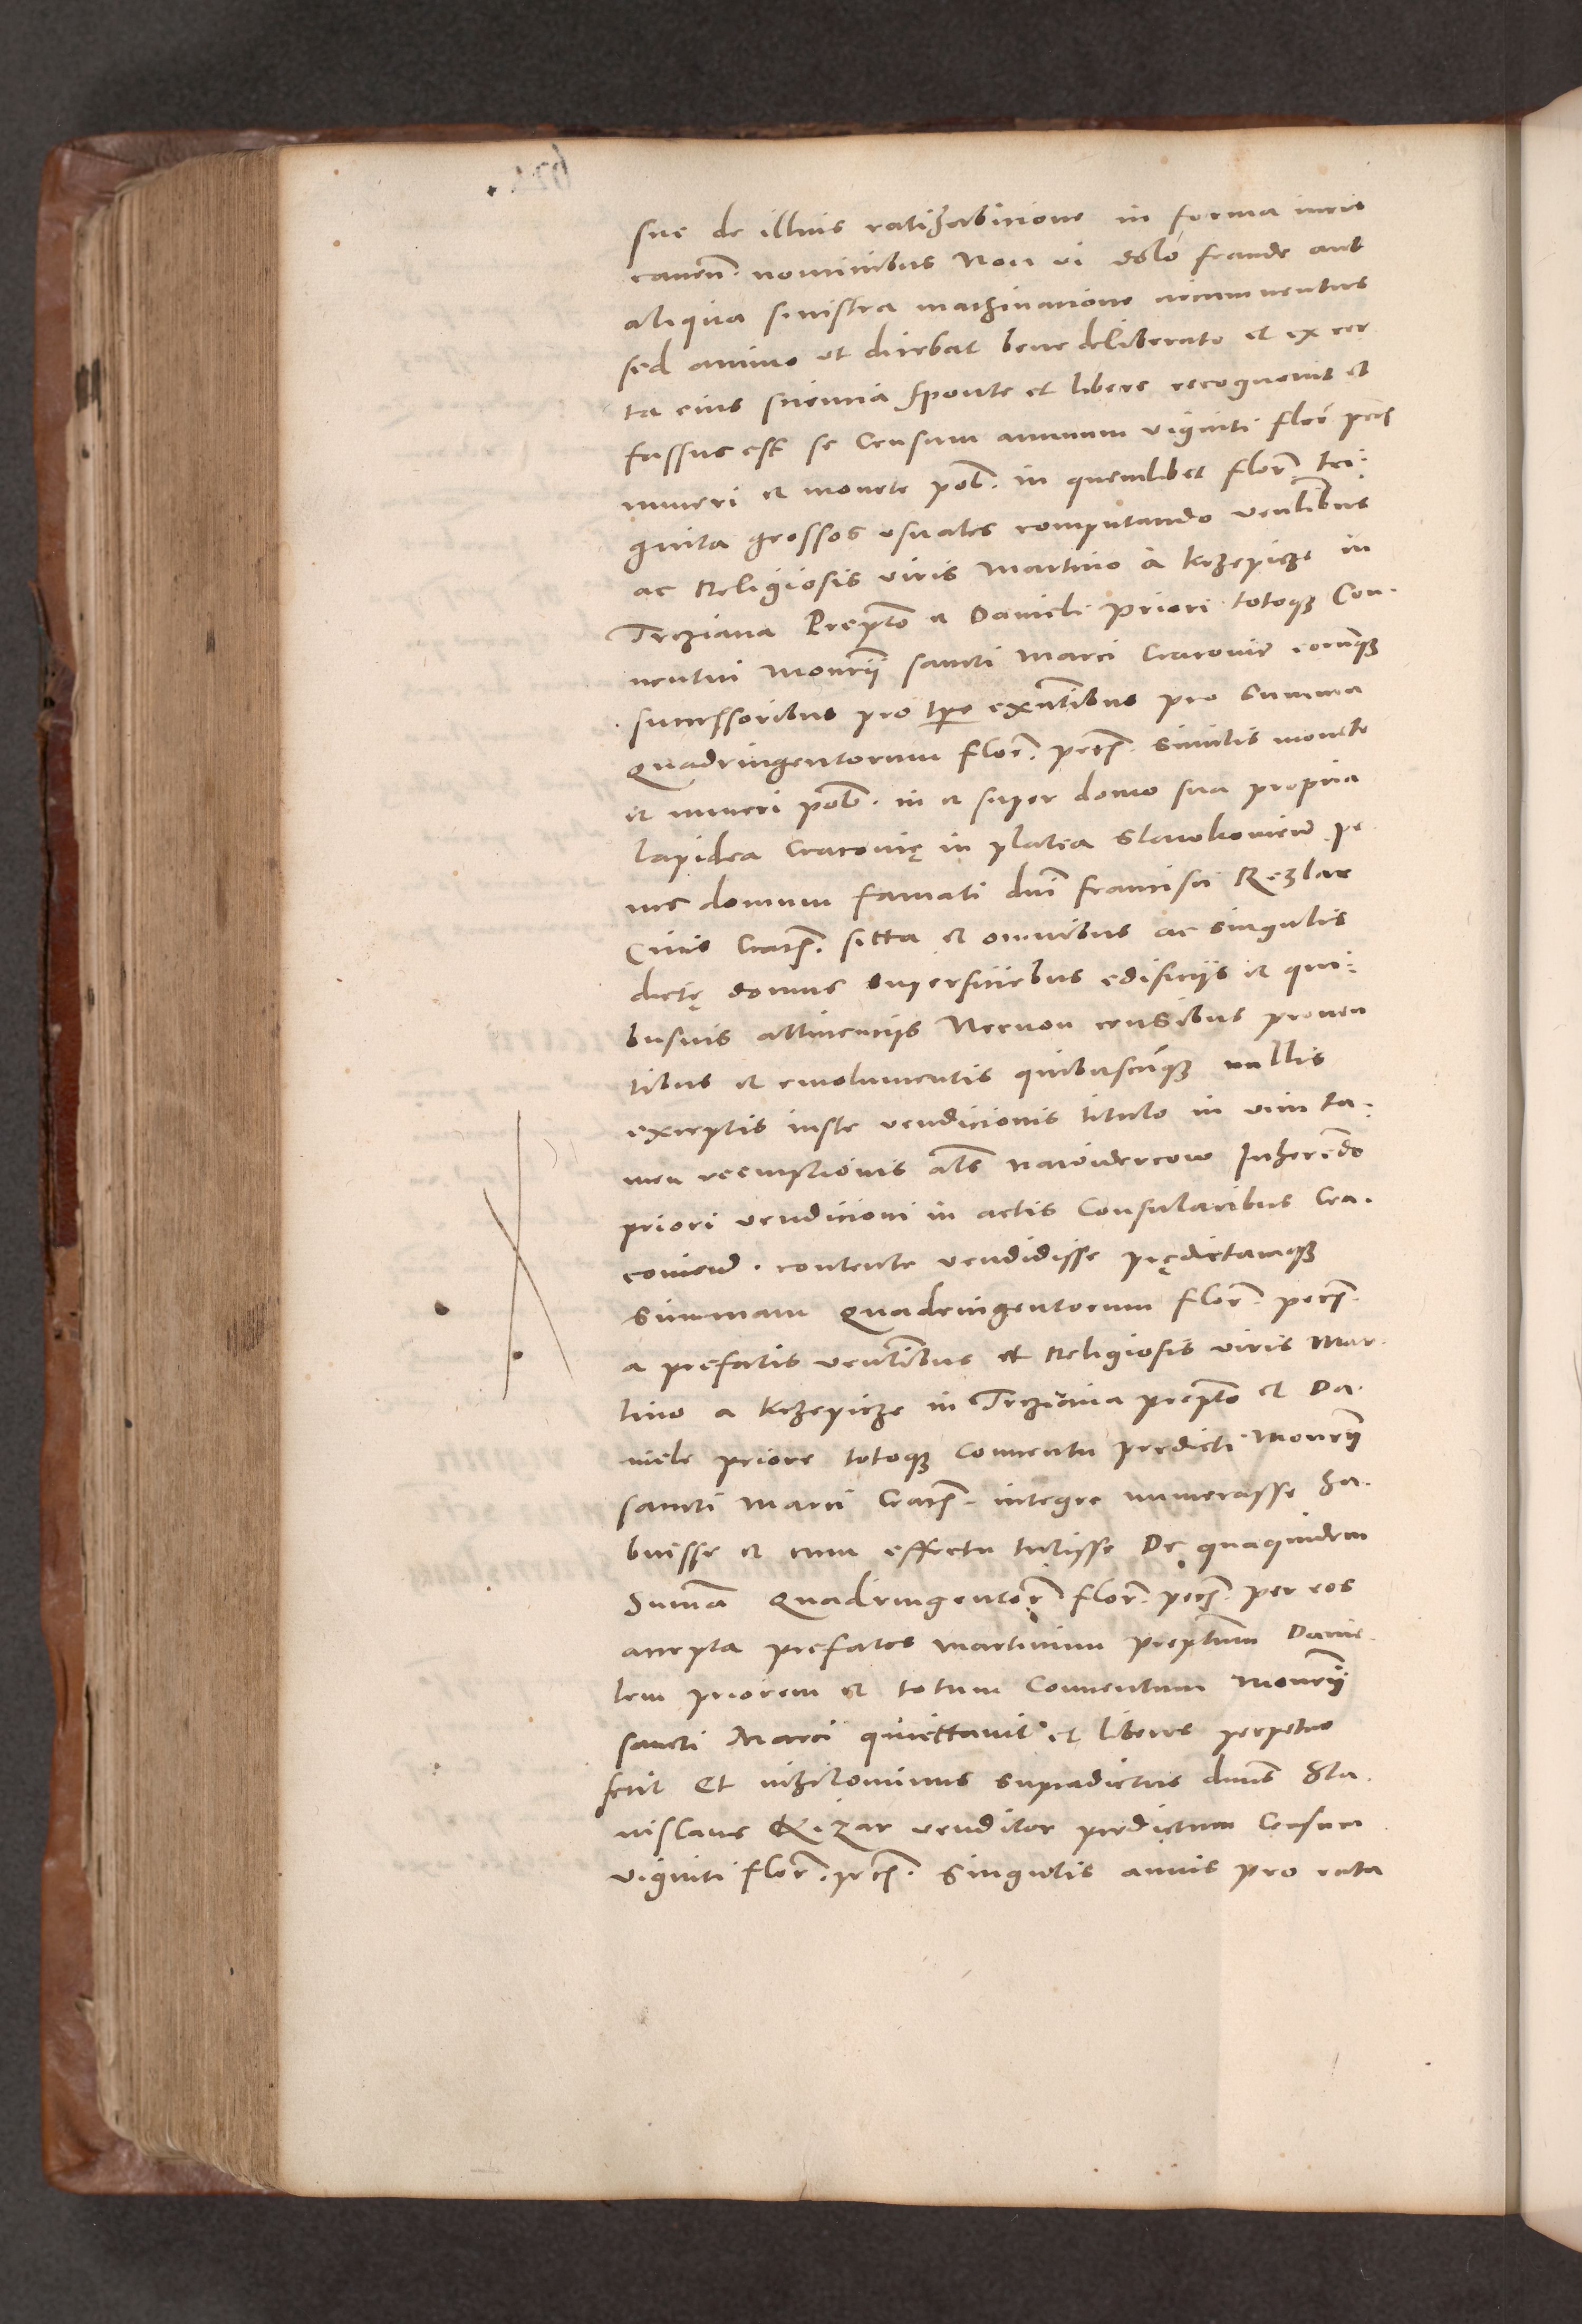 sue de illius ratihabicione in forma iuris
cauen. nominibus Non vi dolo fraude aut
aliqua sinistra machinacione circumuentus
sed animo vt dicebat bene deliberato et ex cer
ta eius sciencia sponte et libere recognouit et
fassus est se Censum annuum viginti flor pecs
numeri et monete pol. in quemlibet flor. tri:
ginta grossos vsuales computando venlibus
ac Religiosis viris Martino a Krzepicze in
Trcziana Prepto et Danieli Priori totoque Con.
uentui Monrii sancti Marci Cracouien eorumque
successoribus pro tpe existentibus pro Summa
Quadringentorum flor. pecs. similis monete
et numeri pol. in et super domo sua propria
lapidea Cracouię in platea Slawkowien pe
nes domum famati dni Francisci Rezlar
Ciuis Cracs. sitta et omnibus ac singulis
dictę domus superficiebus edificijs et qui:
busuis attinencijs Necnon censibus prouen
tibus et emolumentis quibuscunque nullis
exceptis iuste vendicionis titulo in vim ta.
men reempcionis als nawidercow Inherendo
priori vendicioni in actis Consularibus Cra.
couien. contente vendidisse prędictamque
Summam Quadringentorum flor. pecs.
a prefatis venlibus et Religiosis viris Mar.
tino a Krzepicze in Trcziana prepto et Da.
niele priore totoque Conuentu predicti Monrii
sancti Marci Cracs. integre numerasse ha.
buisse et cum effectu tulisse De quaquidem
Summa Quadringentor. flor. pecs. per eos
accepta prefatos Martinum preptum Danie.
lem priorem et totum Conuentum Monrii
sancti Marci quiettauit et liberos perpetuo
fecit Et nihilominus supradictus dnus Sta.
nislaus venditor predictum Censum
viginti flor. pecs. Singulis annis pro rata